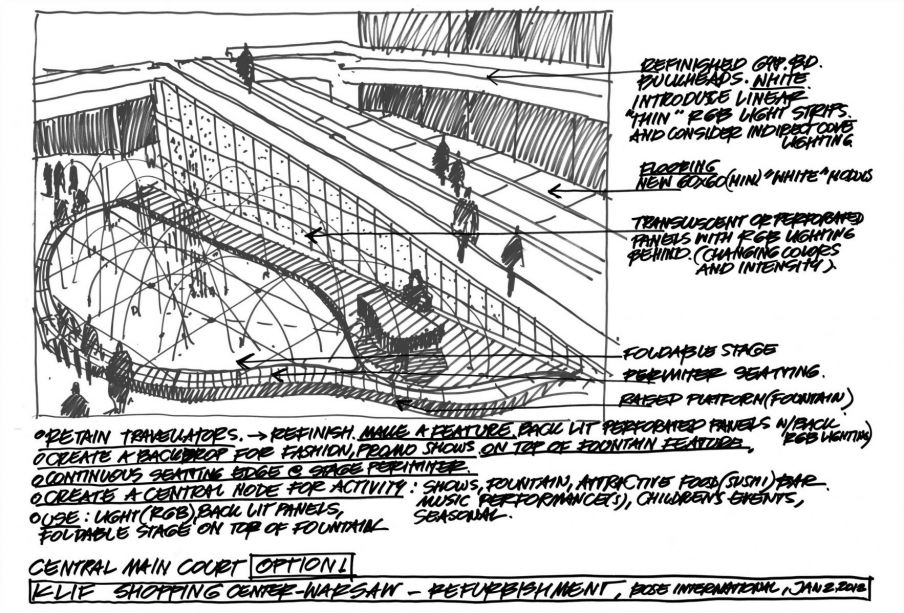 REFINISHED GYP. BD.
BULLHEADS. WHITE
INTRODUSE LINEAR
"THIN" RGB LIGHT STRIPS.
AND CONSIDER INDIRECT COVE
LIGHTING
FLOORING
NEW 60X60 (MIN) "WHITE"
TRANSLUSCENT OR PERFORATED
PANELS WITH RGB LIGHTING
BEHIND. (CHANGING COLORS
AND INTENSITY).
FOLDABLE STAGE
PERIMITER SEATTING.
RAISED PLATFORM (FOUNTAIN)
RETAIN TRAVELLATORS. → REFINISH. MAKE A FEATURE. BACK LIT PERFORATED PANELS W/BACK
RGB LIGHTING)
CREATE A BACKDROP FOR FASHION, PROMO SHOWS ON TOP OF FOUNTAIN FEATURE.
CONTINUOUS SEATTING EDGE @ STAGE PERIMITER.
CREATE A CENTRAL NODE FOR ACTIVITY: SHOWS, FOUNTAIN, ATTRACTIVE FOOD (SUSHI) BAR
MUSIC PERFORMANCE(S), CHILDREN'S EVENTS,
SEASONAL.
USE: LIGHT (RGB), BACK LIT PANELS,
FOLDABLE STAGE ON TOP OF FOUNTAIN
CENTRAL MAIN COURT OPTION 1
KLIF SHOPPING CENTER-WARSAW - REFURBISHMENT, BOSE INTERNATIONAL, JAN 2.2012